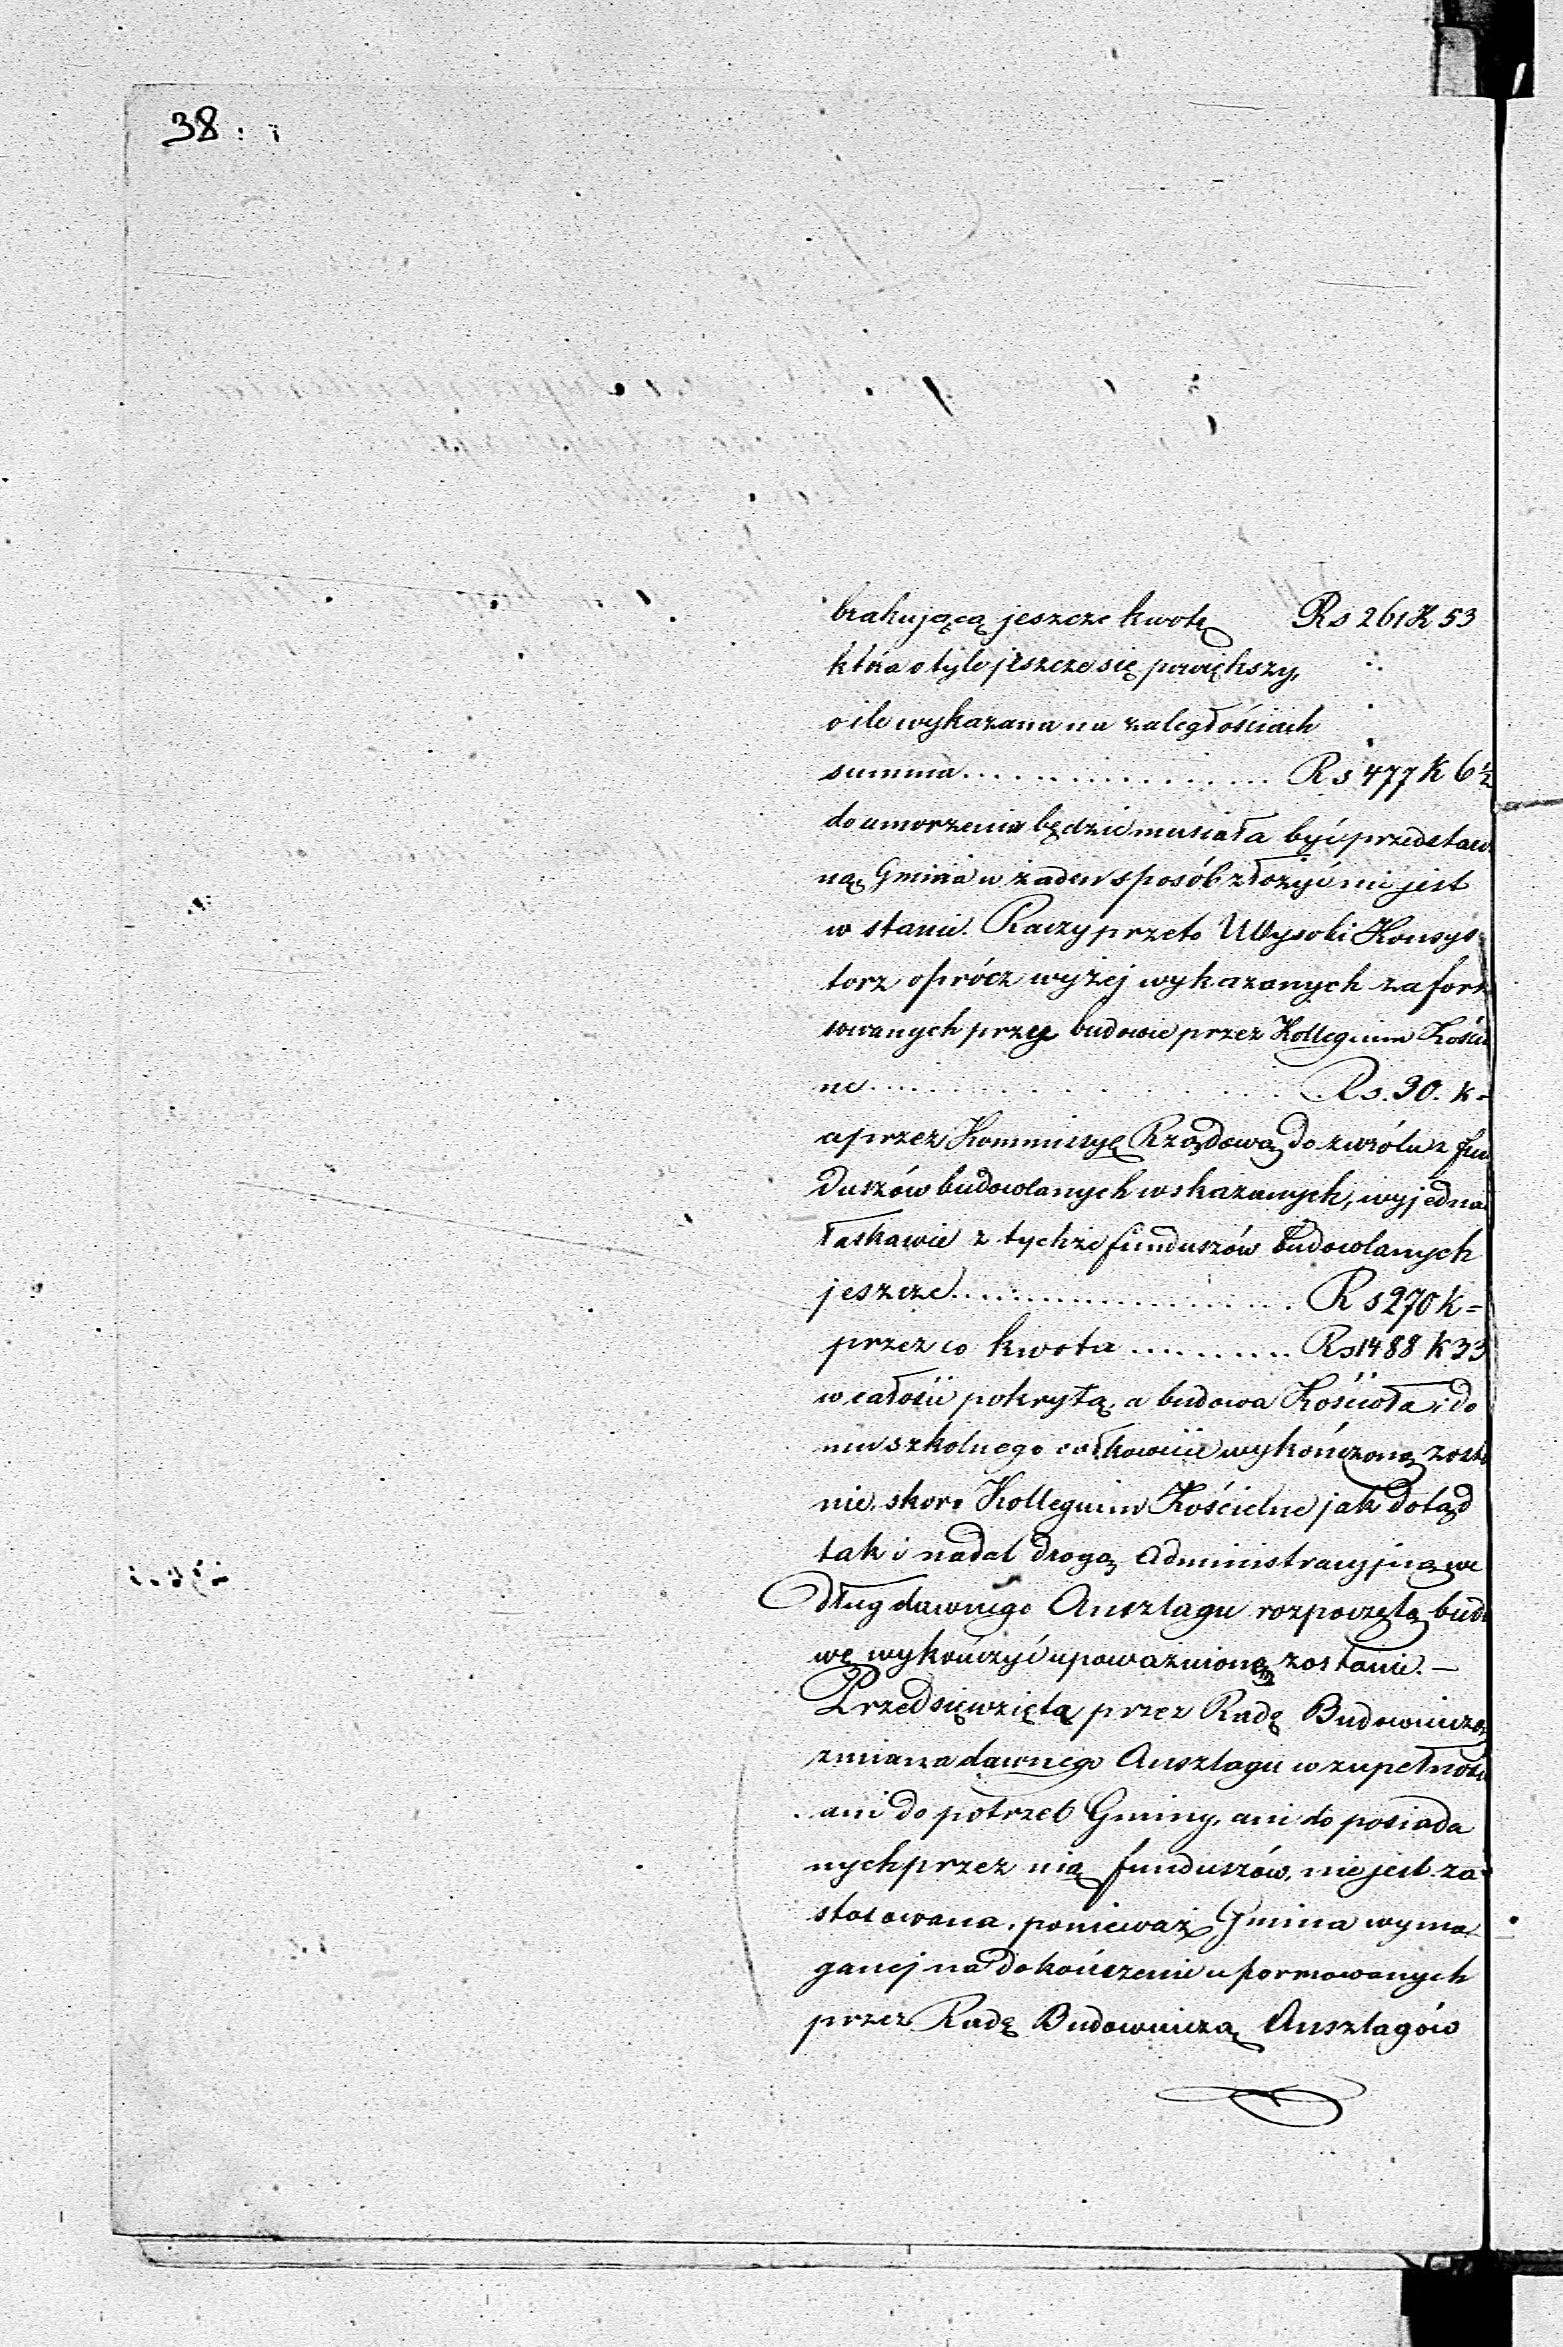 38.
brakującą jeszcze kwotę Rs 261 K 53
która o tyle jeszcze się powiększy,
o ile wykazana na zaległościach
summa .................. Rs 477 K 6½
do umorzenia będzie musiała być przedstaw
ną, Gmina w żaden sposób złożyć nie jest
w stanie. Raczy przeto Wysoki Konsys
torz oprócz wyżej wykazanych zaforsz
sowanych przy budowie przez Kollegium Kościel
ne .................. Rs. 30. k =
a przez Kommissyę Rządową do zwrotu z fun
duszów budowlanych wskazanych, wyjednać
łaskawie z tychże funduszów budowlanych
jeszcze .................. Rs 270 K =
przez co kwota .......... Rs 1488 K 33
w całości pokrytą, a budowa Kościoła i do
mu szkolnego całkowicie wykończoną zosta
nie, skoro Kollegium Kościelne jak dotąd
tak i nadal drogą administracyjną we
dług dawnego Anszlagu rozpoczętą budo
wę wykończyć upoważnioną zostanie. —
Przedsięwziętą przez Radę Budowniczą
zmiana dawnego Anszlagu w zupełności
ani do potrzeb Gminy, ani do posiada
nych przez nią funduszów, nie jest za
stosowana, ponieważ Gmina wyma
ganej na dokończenie uformowanych
przez Radę Budowniczą Anszlagów